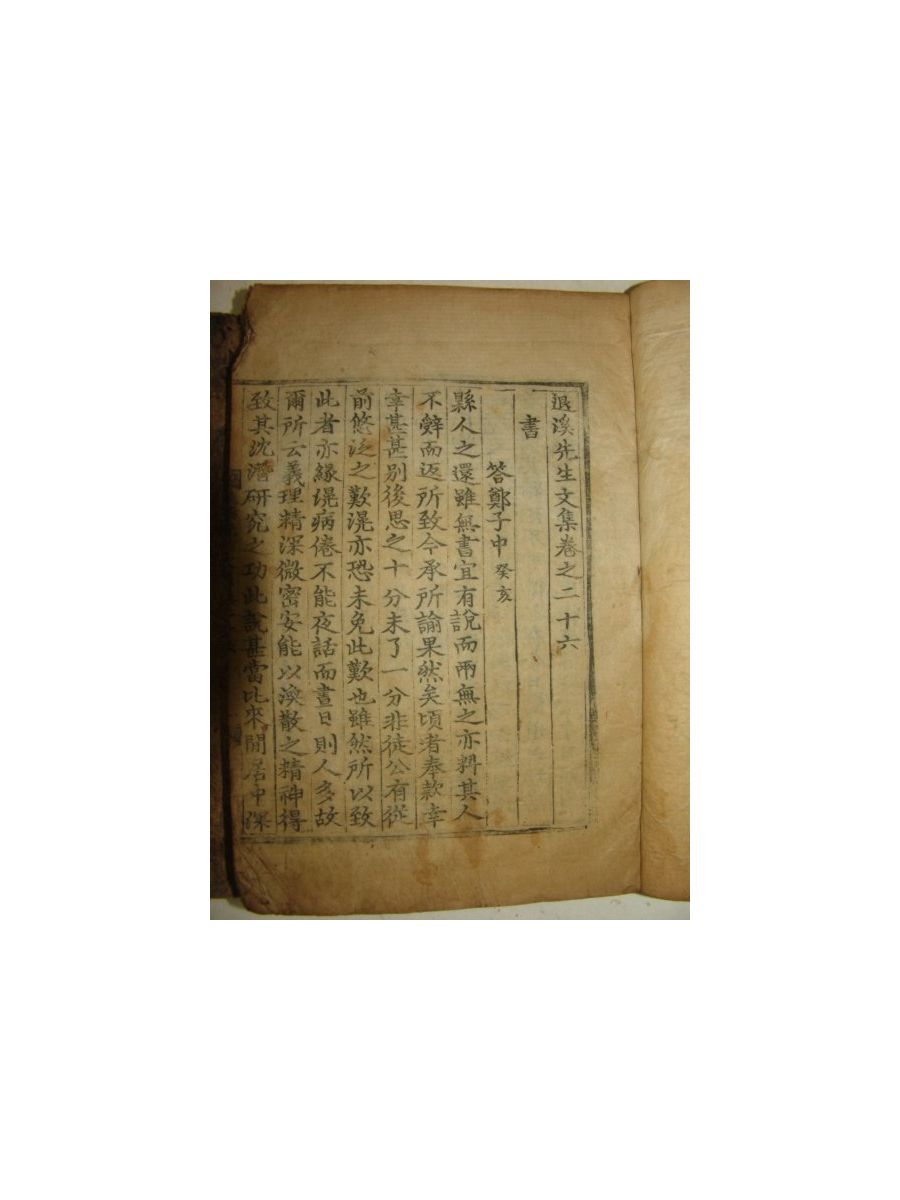 退溪先生文集卷之二十六
書
答鄭子中 癸亥
縣人之還雖無書宜有說而兩無之亦料其人
不辭而返所致今承所諭果然矣頃者奉款幸
幸甚甚別後思之十分未了一分非徒公有從
前悠泛之歎滉亦恐未免此歎也雖然所以致
此者亦緣滉病倦不能夜話而晝日則人多故
爾所云義理精深微密安能以渙散之精神得
致其沈潛硏究之功此說甚當比來閒居中深